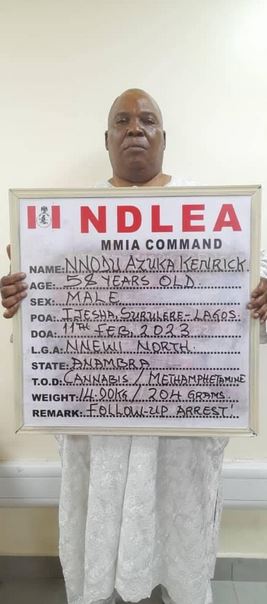 NDLEA
MMIA COMMAND
NAME: NNODU AZUKA KENRICK
AGE: 58 YEARS OLD.
SEX: MALE
POA: IJESHA, SURULERE-LAGOS
DOA: 11TH FEB. 2023
L.G.A: NNEWI NORTH
STATE: ANAMBRA
T.O.D: CANNABIS/METHAMPHETAMINE
WEIGHT: 14.90KG/204 GRAMS
REMARK: FOLLOW-UP ARREST!